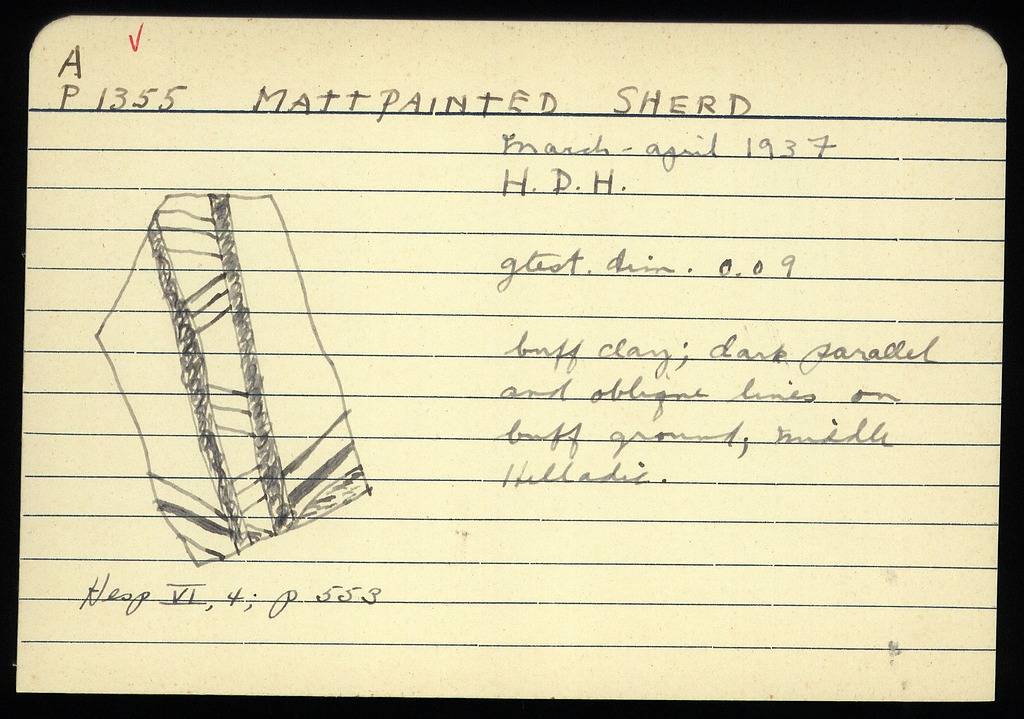 A
P 1355 MATTPAINTED SHERD
March - april 1937
H. D. H.
gtest. dim. 0.09
buff clay; dark parallel
and oblique lines on
buff ground, middle
Helladic.
Hesp VI, 4; p 553